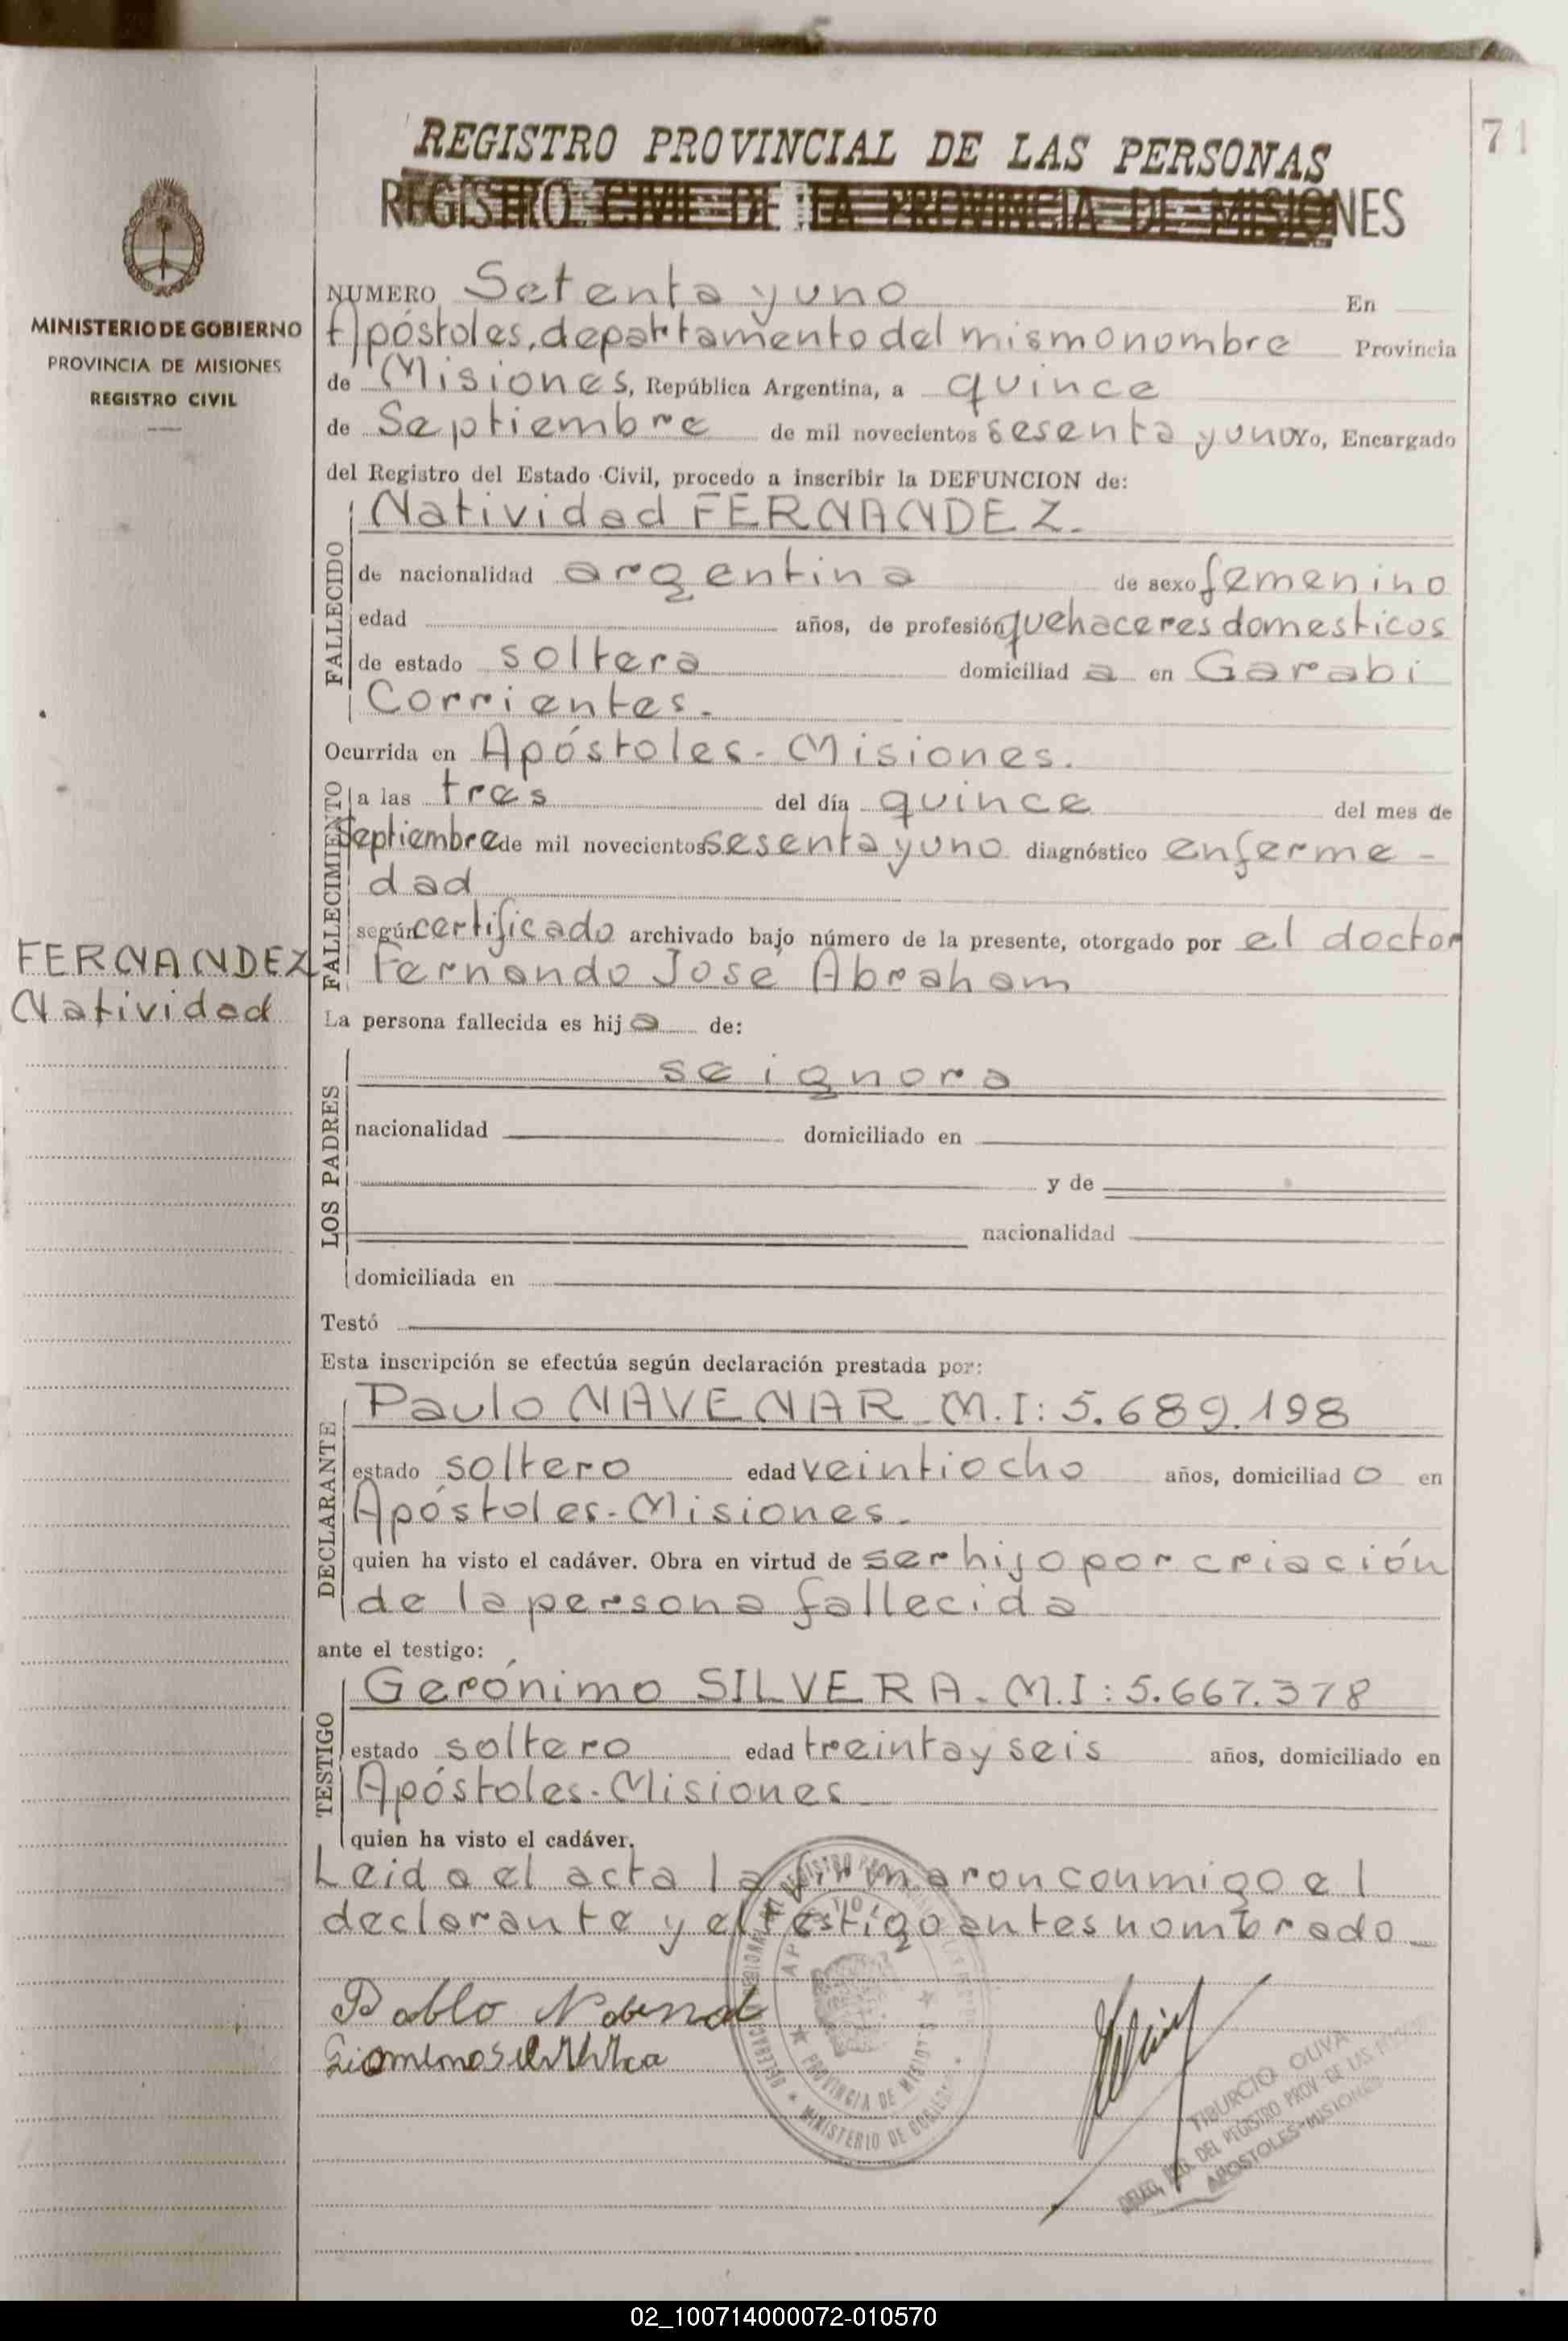 71
REGISTRO PROVINCIAL DE LAS PERSONAS
REGISTRO CIVIL DE LA PROVINCIA DE MISIONES
MINISTERIO DE GOBIERNO
PROVINCIA DE MISIONES
REGISTRO CIVIL
NUMERO Setenta y uno En
Apóstoles, departamento del mismo nombre Provincia
de Misiones, República Argentina, a quince
de Septiembre de mil novecientos sesenta y uno Yo, Encargado
del Registro del Estado Civil, procedo a inscribir la DEFUNCION de:
FALLECIDO
Natividad FERNANDEZ.
de nacionalidad argentina de sexo femenino
edad años, de profesión quehaceres domesticos
de estado soltera domiciliad a en Garabi
Corrientes.
Ocurrida en Apóstoles - Misiones.
FALLECIMIENTO
a las tres del día quince del mes de
Septiembre de mil novecientos sesenta y uno diagnóstico enferme -
dad
según certificado archivado bajo número de la presente, otorgado por el doctor
Fernando José Abraham
FERNANDEZ
Natividad
La persona fallecida es hij a de:
LOS PADRES
se ignora
nacionalidad domiciliado en
y de
nacionalidad
domiciliada en
Testó
Esta inscripción se efectúa según declaración prestada por:
DECLARANTE
Paulo NAVENAR - M.I: 5.689.198
estado soltero edad veintiocho años, domiciliad o en
Apóstoles - Misiones -
quien ha visto el cadáver. Obra en virtud de ser hijo por criación
de la persona fallecida
ante el testigo:
TESTIGO
Gerónimo SILVERA - M.I: 5.667.378
estado soltero edad treinta y seis años, domiciliado en
Apóstoles - Misiones -
quien ha visto el cadáver.
Leida el acta la firmaron conmigo el
declarante y el testigo antes nombrado -
Pablo
PROVINCIA DE MISIONES
MINISTERIO DE GOBIERNO
TIBURCIO OLIVA
DEL REGISTRO PROV. DE LAS
APOSTOLES - MISIONES
02_100714000072-010570